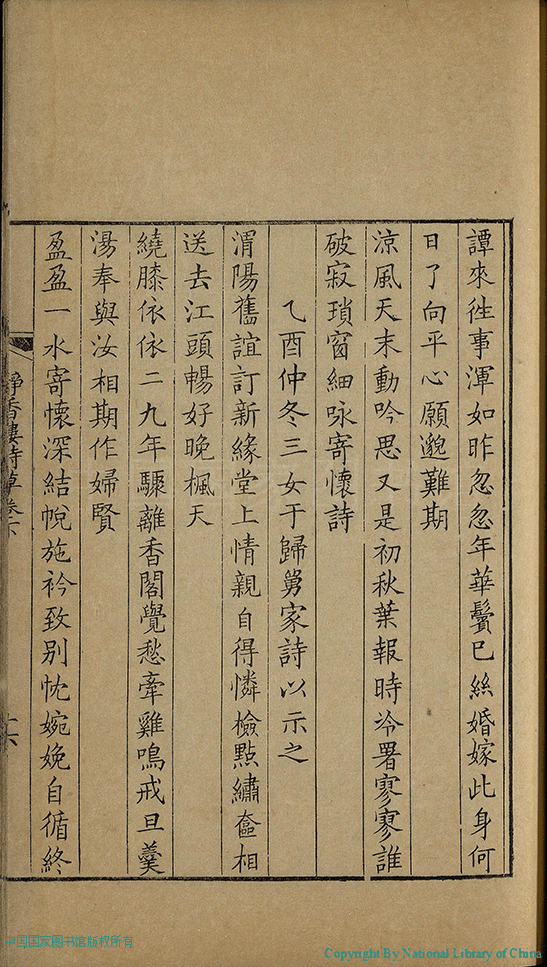 譚來往事渾如昨忽忽年華鬢已絲婚嫁此身何
日了向平心願邈難期
涼風天末動吟思又是初秋葉報時冷署寥寥誰
破寂瑣窗細咏寄懷詩
乙酉仲冬三女于歸舅家詩以示之
渭陽舊誼訂新緣堂上情親自得憐檢點繡奩相
送去江頭暢好晚楓天
繞膝依依二九年驟離香閣覺愁牽雞鳴戒旦羹
湯奉與汝相期作婦賢
盈盈一水寄懷深結帨施衿致别忱婉娩自循終
淨香樓詩草卷下
十六
中国国家图书馆版权所有
Copyright By National Library of China